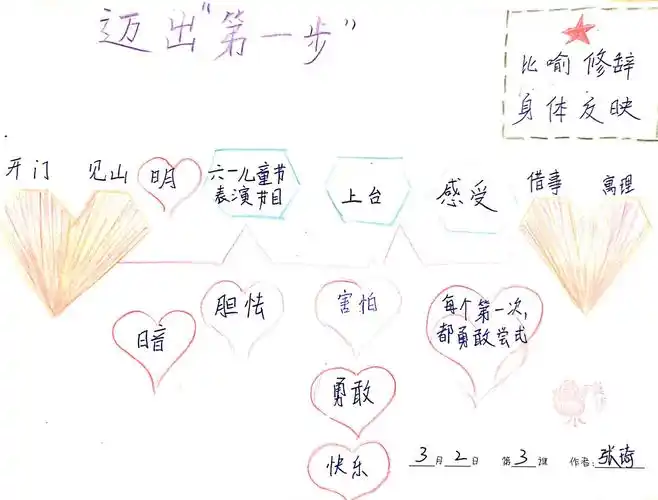 迈出"第一步"
比喻修辞
身体反映
开门 见山
明
六一儿童节
表演节目
上台
感受
借事 寓理
暗
胆怯
害怕
每个第一次,
都勇敢尝试
勇敢
快乐
3月2日 第3班 作者:张琦